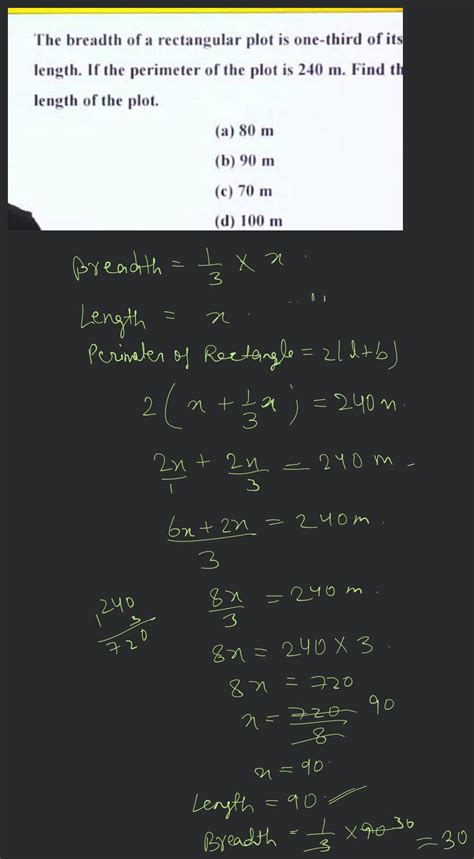 The breadth of a rectangular plot is one-third of its
length. If the perimeter of the plot is 240 m. Find th
length of the plot.
(a) 80 m
(b) 90 m
(c) 70 m
(d) 100 m
Breadth = 1/3 × x
Length = x
Perimeter of Rectangle = 2(l+b)
2(x + 1/3 x) = 240m.
2x/1 + 2x/3 = 240 m
6x+2x/3 = 240m.
240
3
720
8x/3 = 240 m.
8x = 240 × 3
8x = 720
x = 720/8 90
x = 90
Length = 90
Breadth = 1/3 × 90 30 = 30